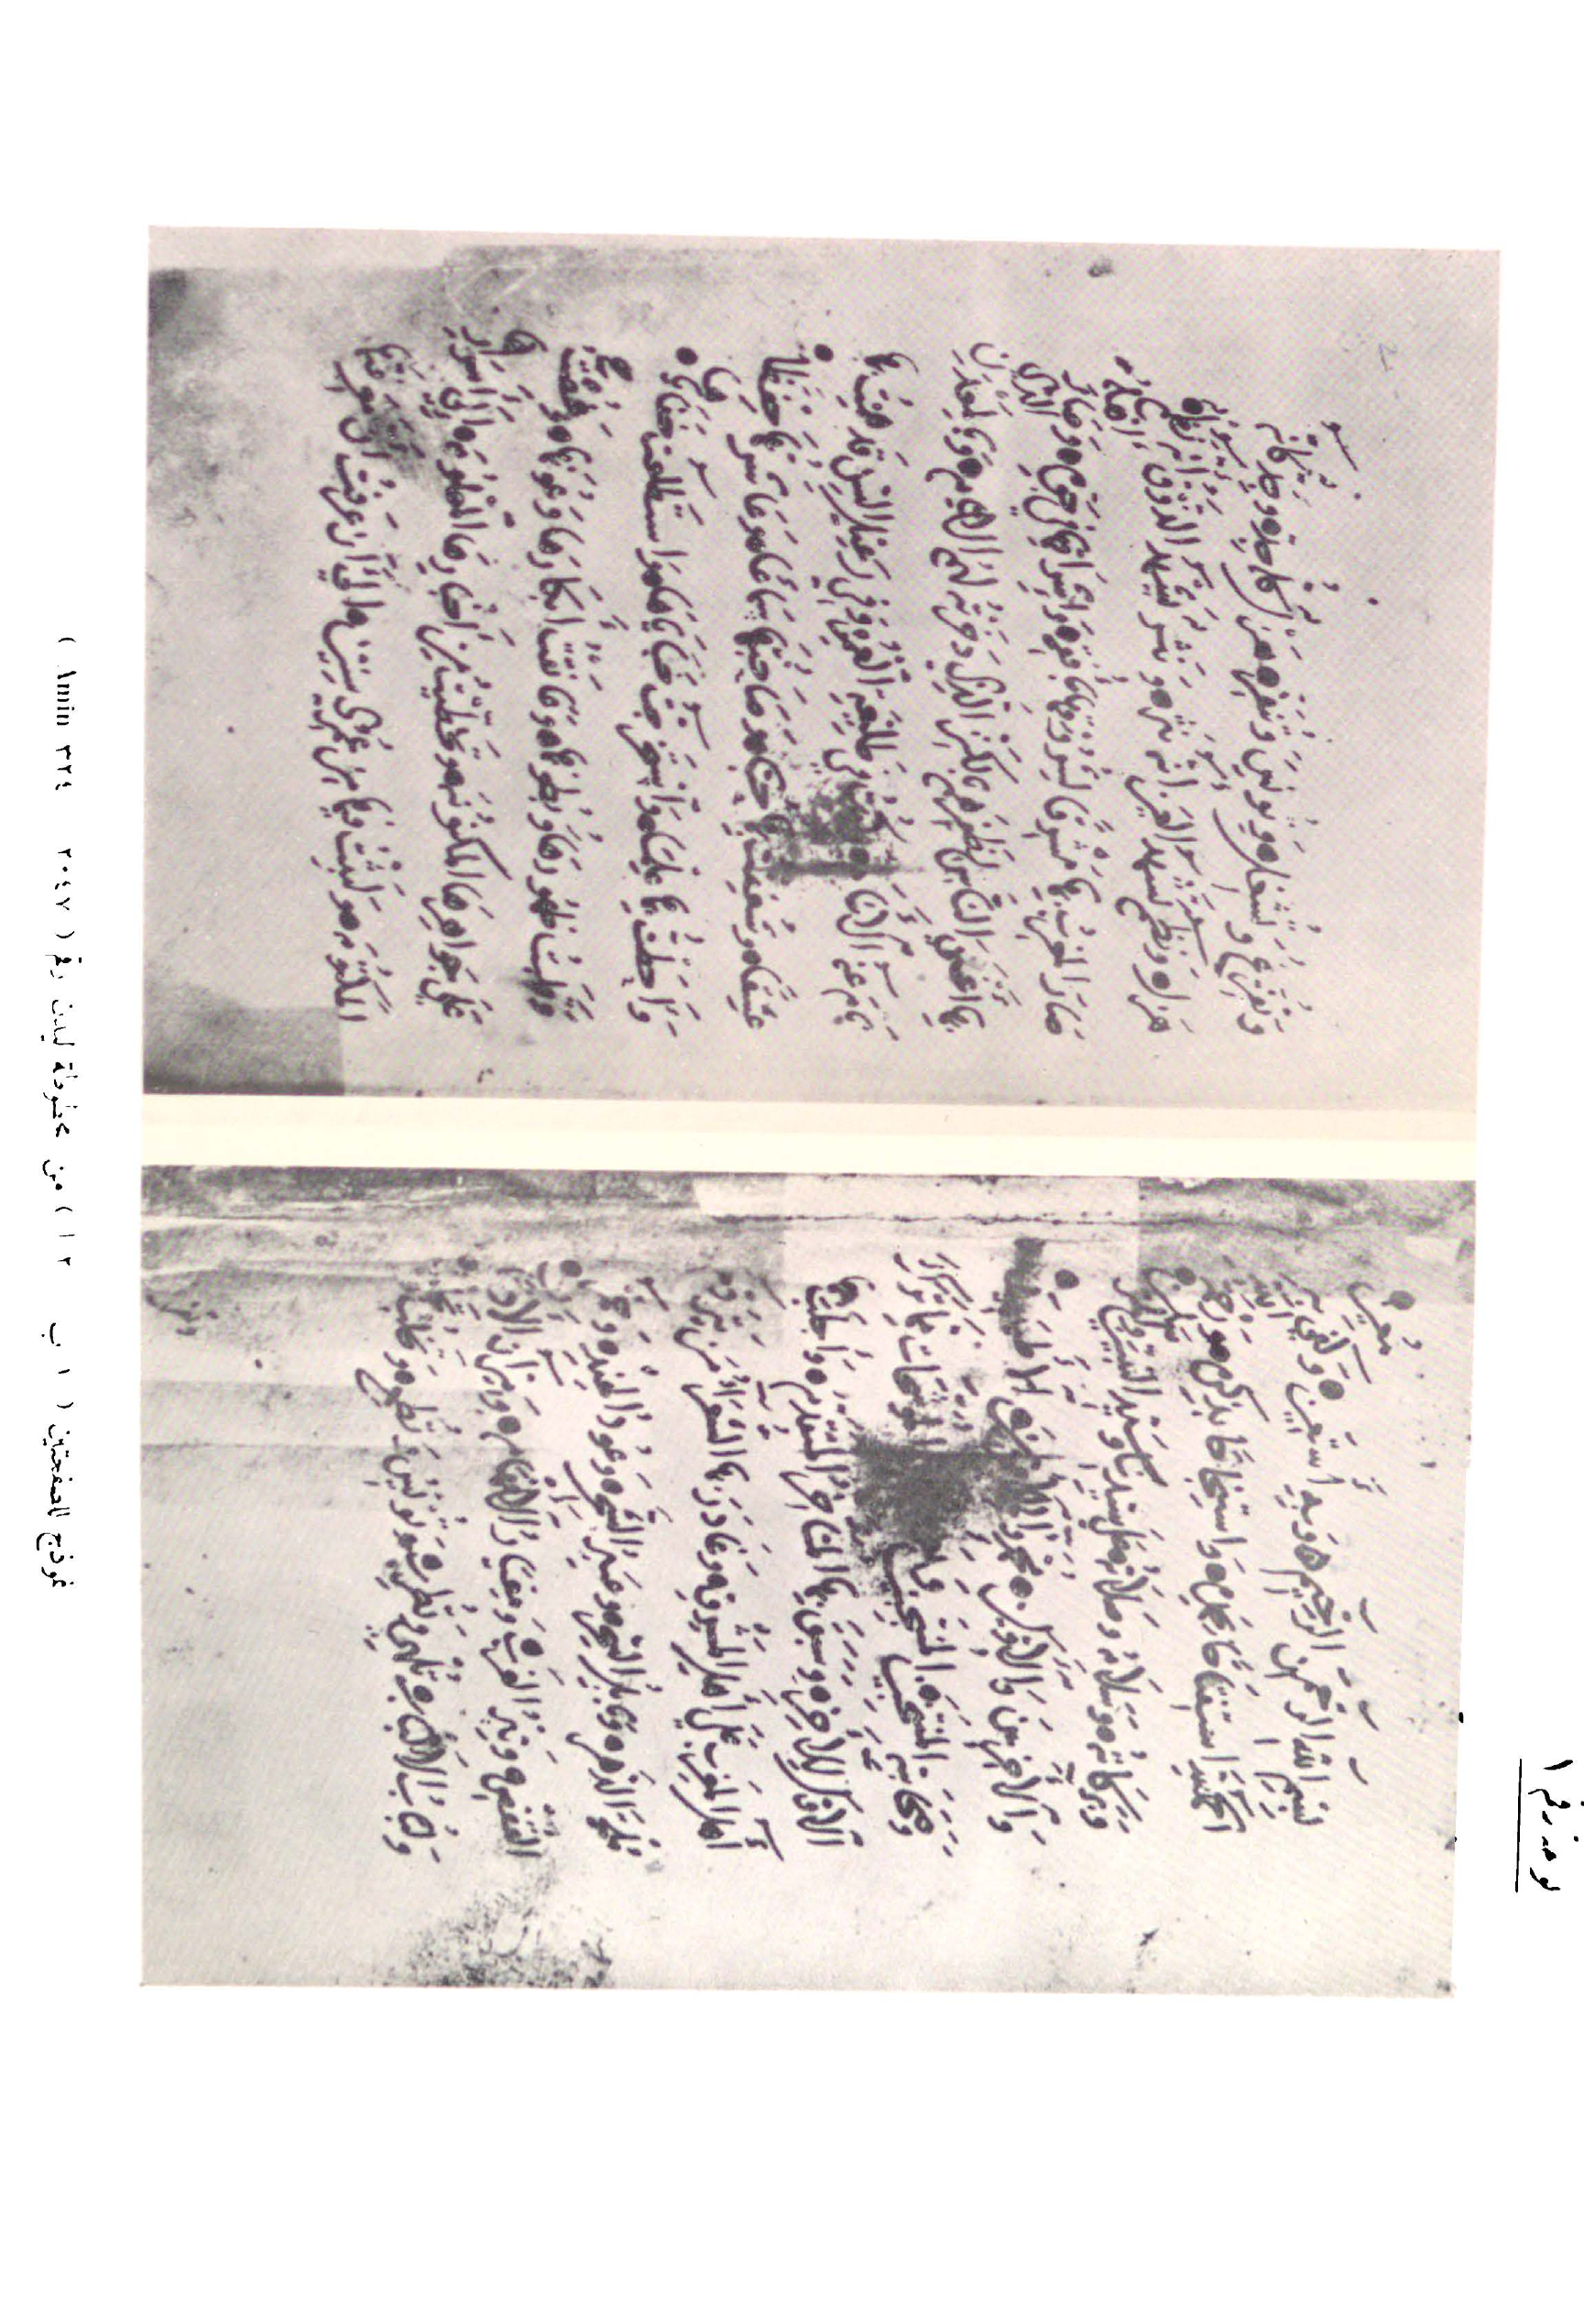 لوحة رقم ١
بسم الله الرحمن الرحيم وبه أستعين وكفى به معين
الحمد لله استفتاحا بحمده واستنجاحا بذكره وصلى الله
وبركاته وسلامه وصلاته على سيدنا وسيد البشر
والآخرين والأولين محمد وآله
الموشحات مما ترك
الأول للآخر وسبق بها المتأخر المتقدم وأجلب بها
أهل المغرب على أهل المشرق وغادر بها الشعراء من متردم
ملحة الدهر وبابل السحر وعنبر الشحر وعود الهند وخمر
القفص وتبر الغرب ومعيار الأفهام وميزان الأذهان
ولباب الألباب تلهي وتطرب وتؤنس وتطمع
وتفرغ وتشغل وتؤنس وتنفر هزل
هزل ونظم تشهد العين أنه نثر ونثر يشهد الذوق أنه نظم
صار المغرب بها مشرقا لشروقها بأفقه وإشراقها في جوه وصار أهله
بها أغنى الناس لظفرهم بالكنز الذي ذخرته لهم الأيام وبالمعدن الذي
نام عنه الأنام وكنت في طليعة العمر وفي رعيل السن قد همت بها
عشقا وشغفت بها حبا وصاحبتها سماعا وعاشرتها حفظا
وأحطت بها علما واستخرجت خباياها واستطلعت خفاياها
وقلبت ظهورها وبطونها وعانقت أبكارها وعونها وغصت
على جواهرها المكنونة وتخطيت من أخبارها المعلومة إلى أسرارها
المكتومة ولبثت فيها من عمري سنين إلى أن عرفت أن معرفتها
نموذج الصفحتين ( ١ ب ٢ ا ) من مخطوطة ليدن رقم ( ٢٠٤٧ Amin ٣٢٤ )